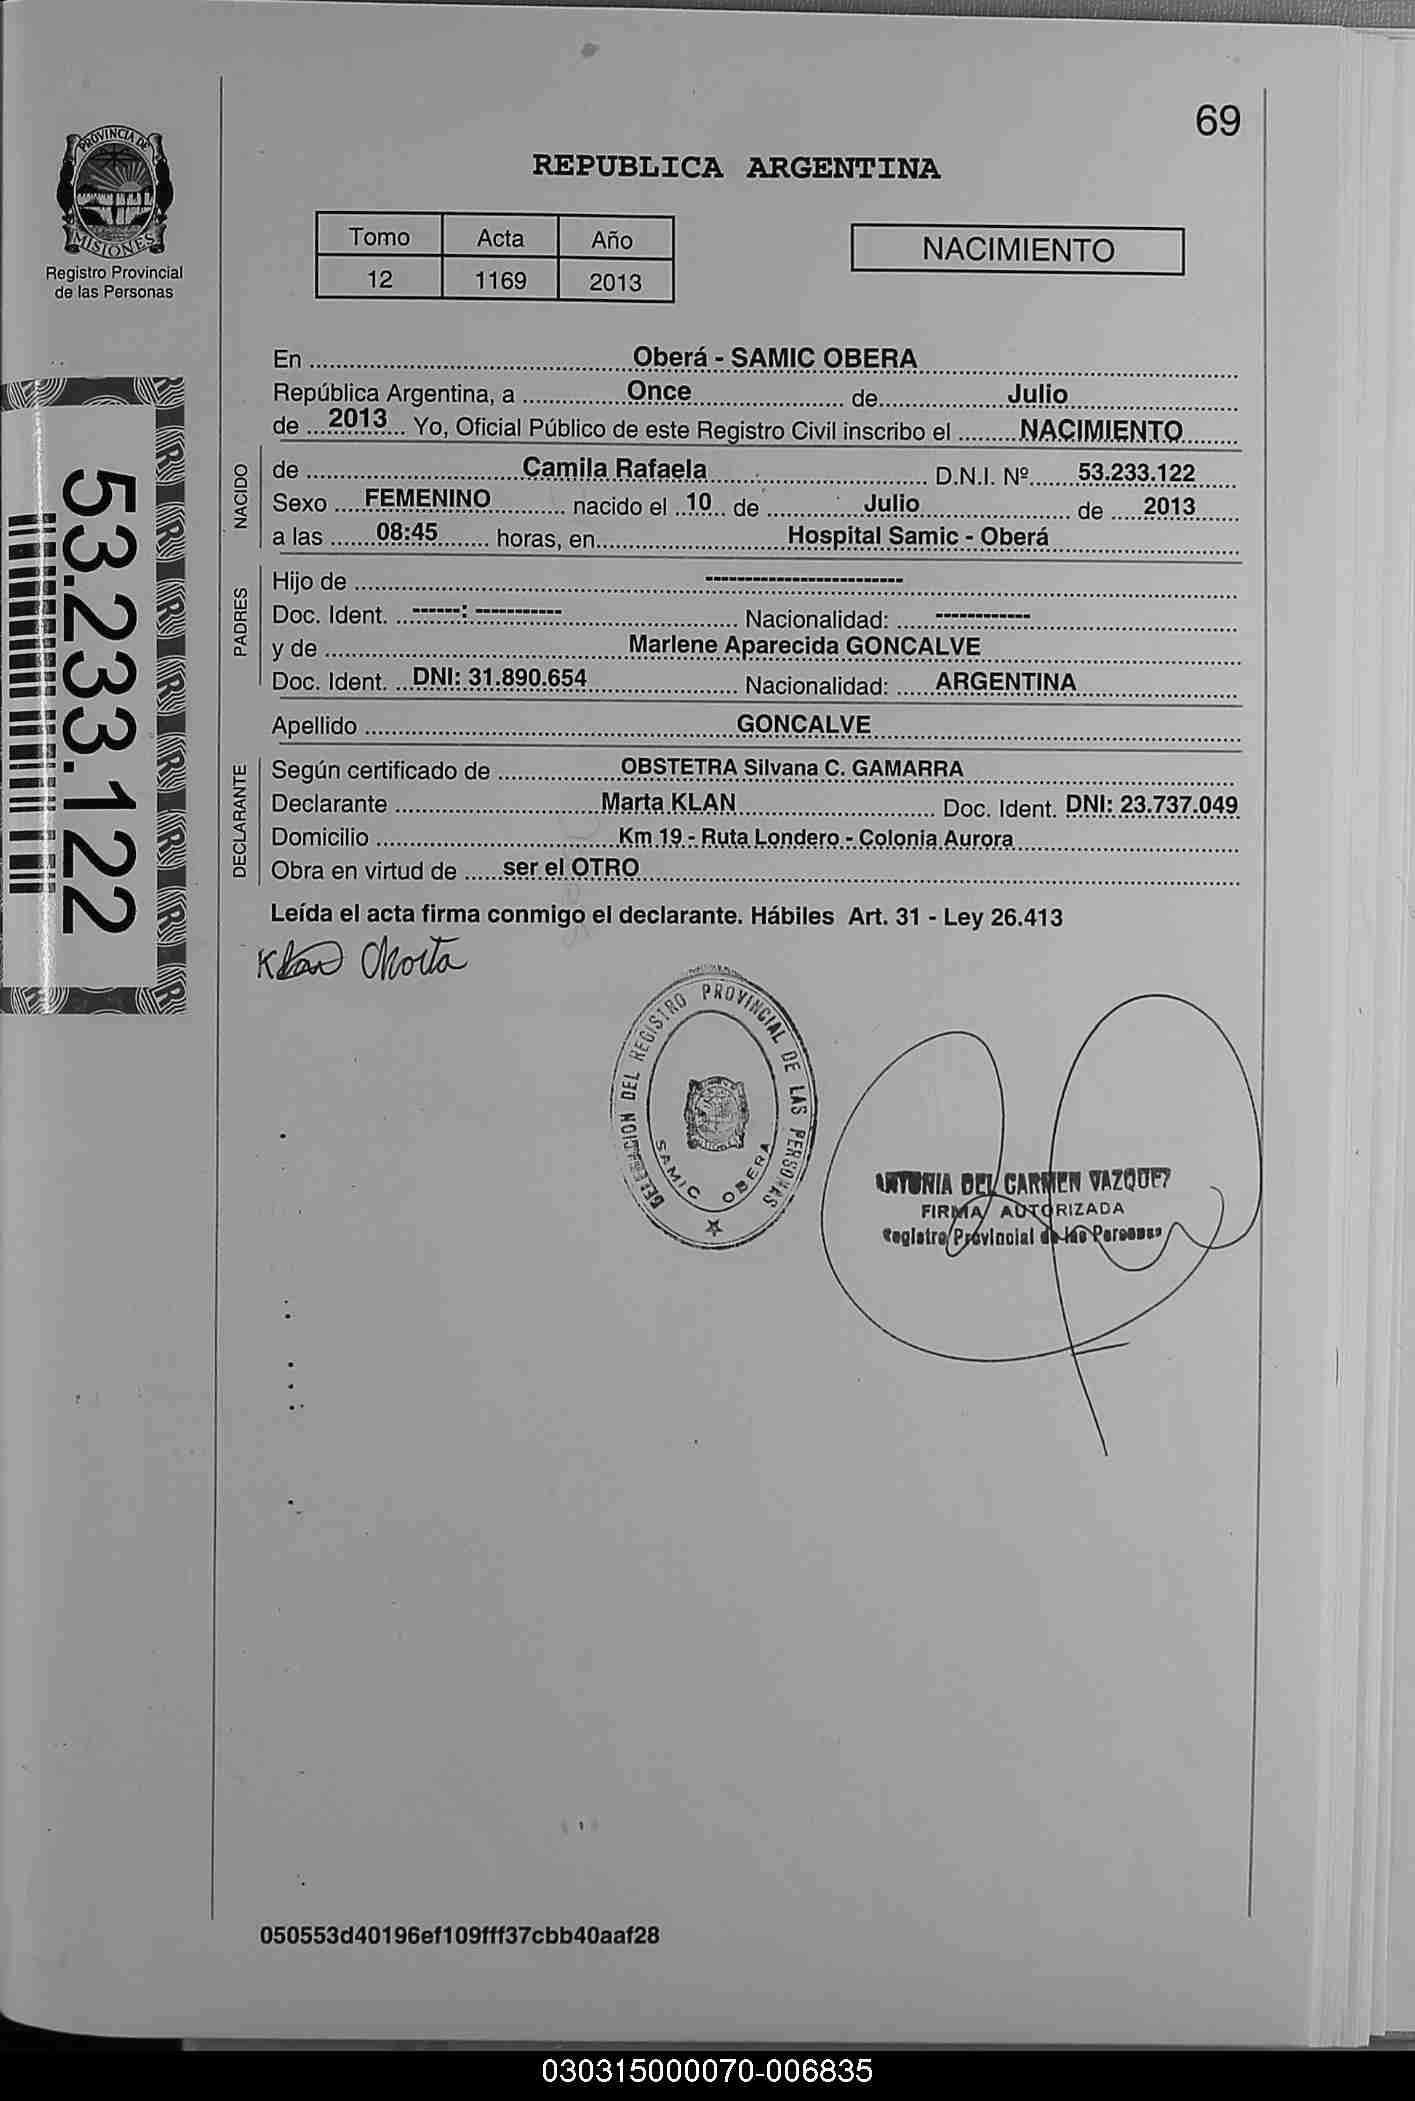 69
PROVINCIA DE
MISIONES
Registro Provincial
de las Personas
REPUBLICA ARGENTINA
Tomo Acta Año
12 1169 2013
NACIMIENTO
En ........ Oberá - SAMIC OBERA
República Argentina, a ........ Once ........ de ........ Julio
de ... 2013 ... Yo, Oficial Público de este Registro Civil inscribo el ........ NACIMIENTO
NACIDO
de ........ Camila Rafaela ........ D.N.I. Nº ...... 53.233.122
Sexo .... FEMENINO ........ nacido el .. 10 .. de ........ Julio ........ de .... 2013
a las ...... 08:45 ...... horas, en ........ Hospital Samic - Oberá
PADRES
Hijo de ........ -------------------------
Doc. Ident. .. ------: ----------- ........ Nacionalidad: ..... ------------
y de ........ Marlene Aparecida GONCALVE
Doc. Ident. .. DNI: 31.890.654 ........ Nacionalidad: ..... ARGENTINA
Apellido ........ GONCALVE
DECLARANTE
Según certificado de ........ OBSTETRA Silvana C. GAMARRA
Declarante ........ Marta KLAN ........ Doc. Ident. DNI: 23.737.049
Domicilio ........ Km 19 - Ruta Londero - Colonia Aurora
Obra en virtud de ..... ser el OTRO
Leída el acta firma conmigo el declarante. Hábiles Art. 31 - Ley 26.413
Klan Marta
53.233.122
DELEGACION DEL REGISTRO PROVINCIAL DE LAS PERSONAS
SAMIC OBERA
ANTONIA DEL CARMEN VAZQUEZ
FIRMA AUTORIZADA
Registro Provincial de las Personas
050553d40196ef109fff37cbb40aaf28
030315000070-006835